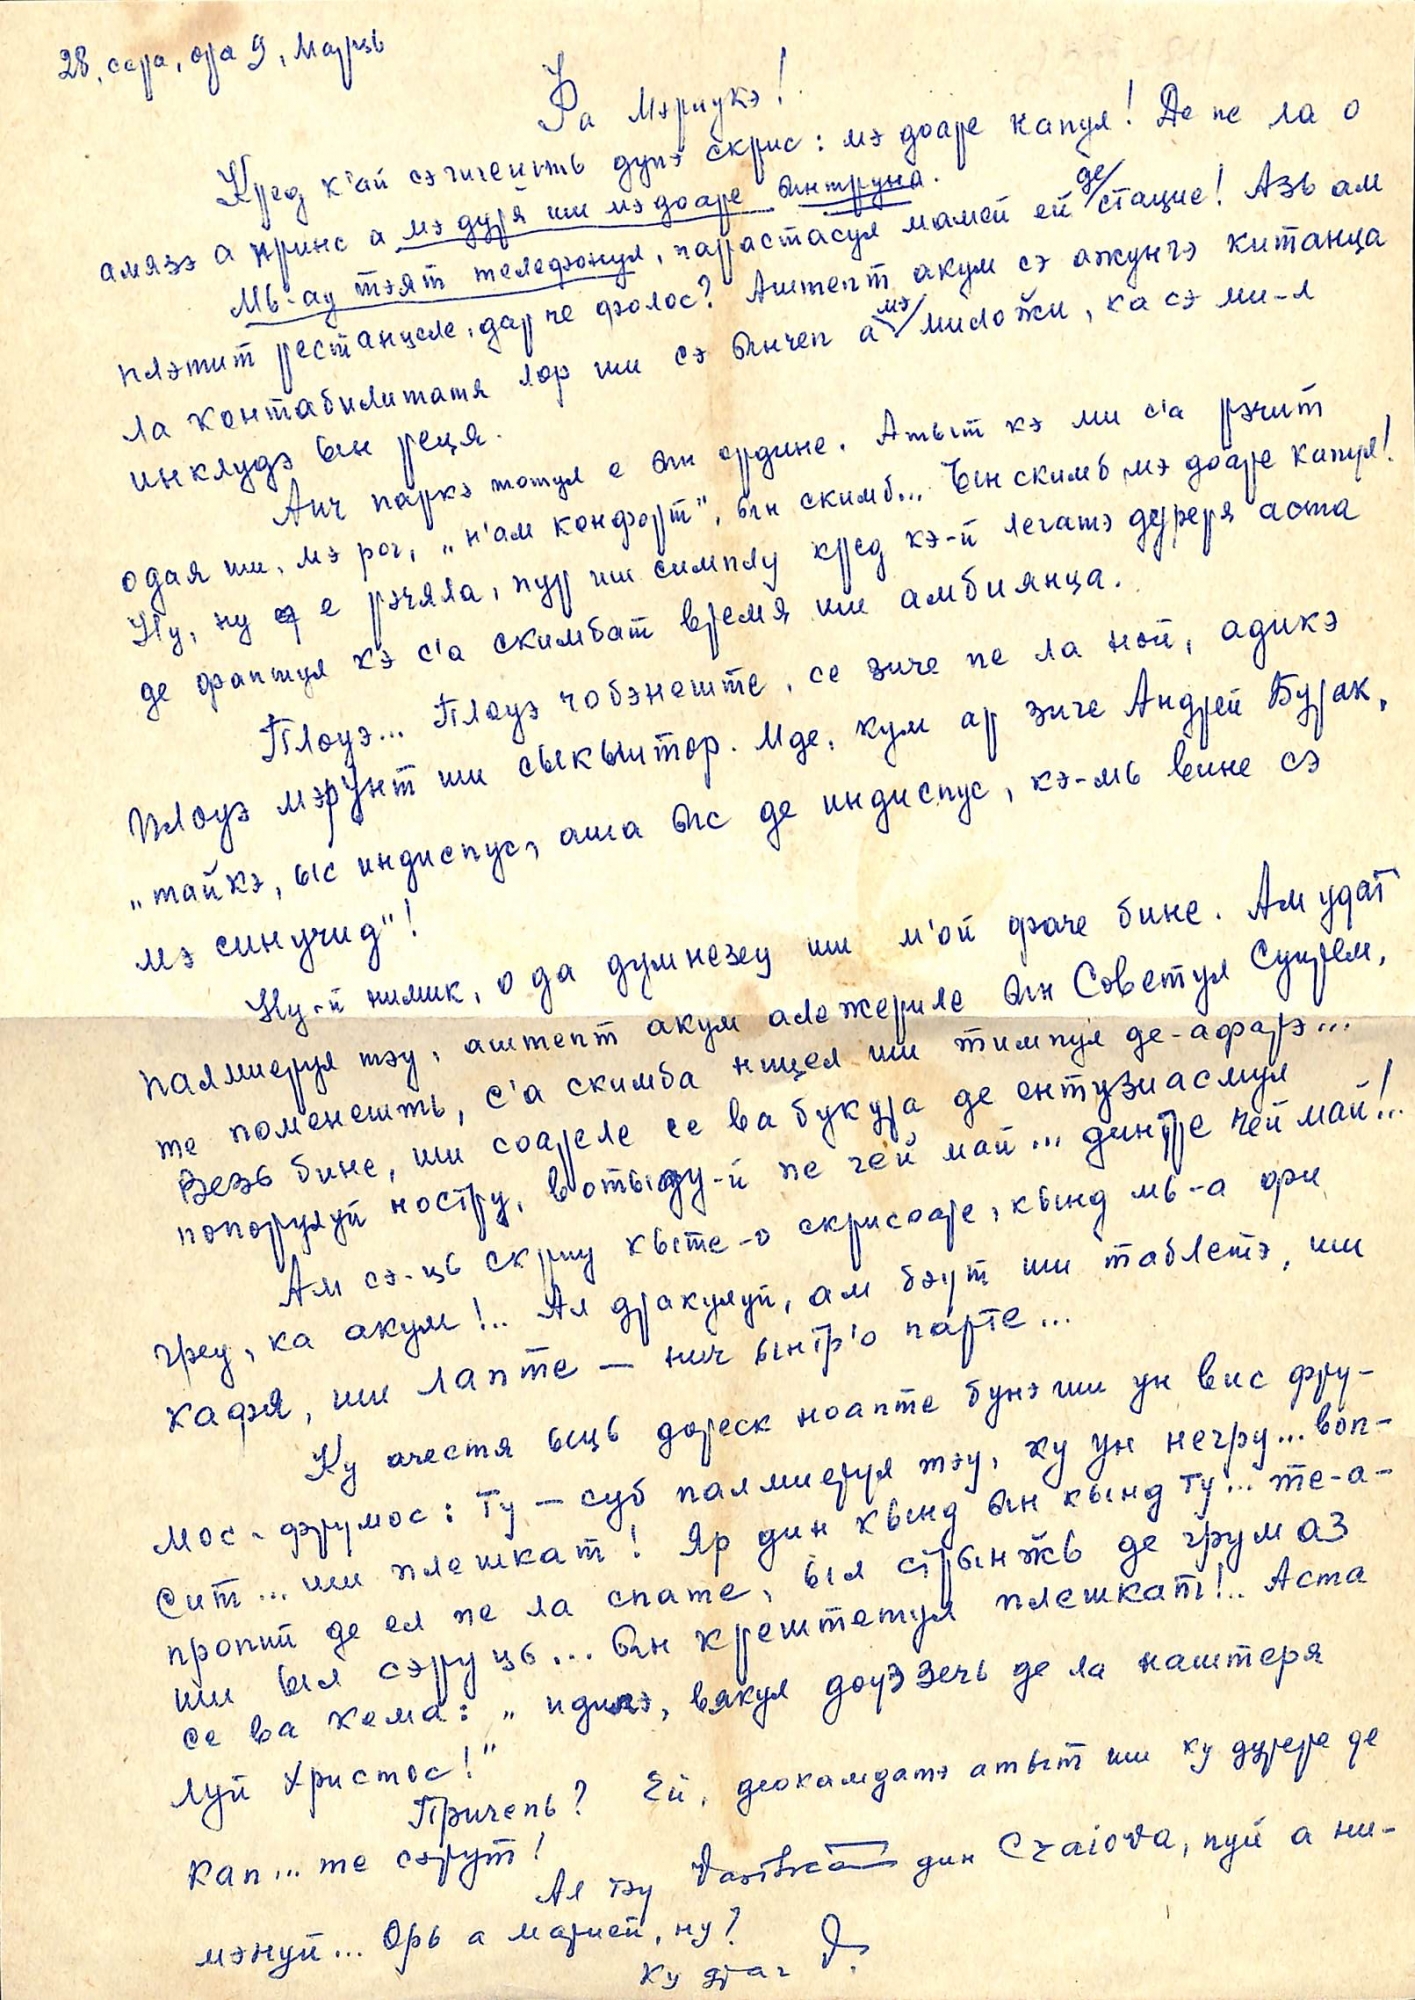 28, сара, ора 9, Марць
Фа Мэриукэ!
Кред к'ай сэ гичешть дупэ скрис: мэ доаре капул! Де пе ла о
амязэ а принс а мэ дуря ши мэ доаре ынтруна.
Мь-ау тэят телефонул, парастасул мамей ей де стацие! Азь ам
плэтит рестанцеле, дар че фолос? Аштепт акум сэ ажунгэ китанца
ла контабилитатя лор ши сэ ынчеп а мэ миложи, ка сэ ми-л
инклудэ ын реця.
Аич паркэ тотул е ын ордине. Атыт кэ ми с'а рэчит
одая ши, мэ рог, „н'ам конфорт", ын скимб... Ын скимб мэ доаре капул!
Ну, ну е рэчяла, пур ши симплу кред кэ-й легатэ дуреря аста
де фаптул кэ с'а скимбат время ши амбиянца.
Плоуэ... Плоуэ чобэнеште, се зиче пе ла ной, адикэ
плоуэ мэрунт ши сыкыитор. Мде, кум ар зиче Андрей Бурак,
„тайкэ, ыс индиспус, аша ыс де индиспус, кэ-мь вине сэ
мэ синучид"!
Ну-й нимик, о да думнезеу ши м'ой фаче бине. Ам удат
палмиерул тэу, аштепт акум алежериле ын Советул Супрем,
те поменешть, с'а скимба ницел ши тимпул де-афарэ...
Везь бине, ши соареле се ва букура де ентузиасмул
попорулуй ностру, вотынду-й пе чей май... динтре чей май!..
Ам сэ-ць скриу кыте-о скрисоаре, кынд мь-а фи
греу, ка акум!.. Ал дракулуй, ам бэут ши таблетэ, ши
кафя, ши лапте — нич ынтр'о парте...
Ку ачестя ыць дореск ноапте бунэ ши ун вис фру-
мос-фрумос: Ту — суб палмиерул тэу, ку ун негру... воп-
сит... ши плешкат! Яр дин кынд ын кынд ту... те-а-
пропий де ел пе ла спате, ыл стрынжь де грумаз
ши ыл сэруць... ын крештетул плешкат!.. Аста
се ва кема: „идилэ, вякул доуэзечь де ла наштеря
луй Христос!"
Причепь? Ей, деокамдатэ атыт ши ку дурере де
кап... те сэрут!
Ал тэу дин Craiova, пуй а ни-
мэнуй... Орь а марией, ну?
Ку драг D.